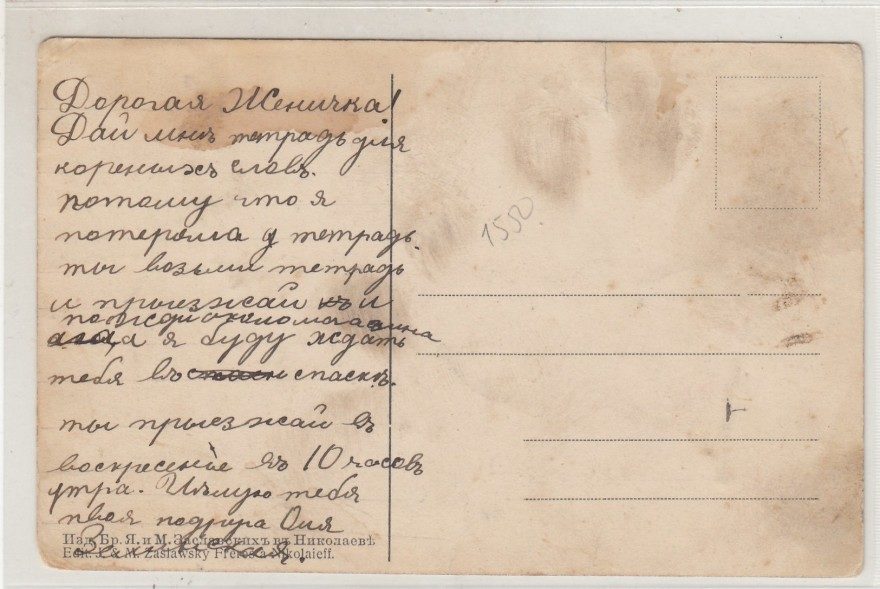 Дорогая Женичка!
Дай мнѣ тетрадь для
кореныхъ словъ.
потому что я
потеряла у тетрадь.
ты возьми тетрадь
и приезжай къ и
подожди около магазина
а я буду ждать
тебя въ спаскѣ.
ты приезжай въ
воскресеніе въ 10 часовъ
утра. Цѣлую тебя
твоя подруга Оля
Изд. Бр. Я. и М. Заславскихъ въ Николаевѣ
Edit. J. & M. Zaslawsky Frères à Nikolaieff.
1550